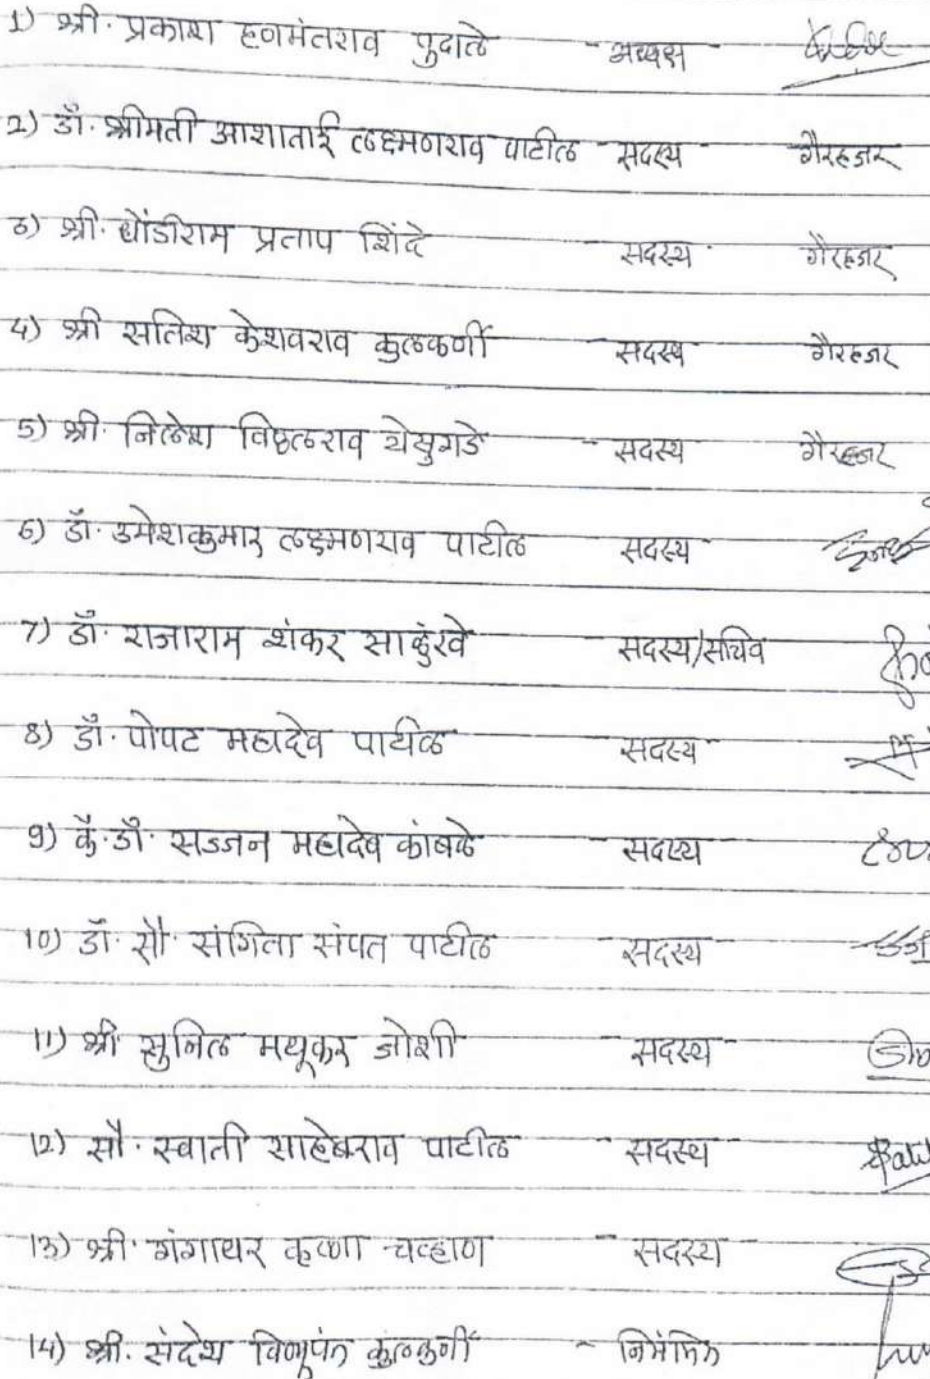 1) श्री. प्रकाश हणमंतराव पुदाले - अध्यक्ष
2) डॉ. श्रीमती आशाताई लक्ष्मणराव पाटील सदस्य गैरहजर
3) श्री. धोंडीराम प्रताप शिंदे सदस्य गैरहजर
4) श्री सतिश केशवराव कुलकर्णी सदस्य गैरहजर
5) श्री. निलेश विठ्ठलराव येसुगडे - सदस्य गैरहजर
6) डॉ. उमेशकुमार लक्ष्मणराव पाटील सदस्य
7) डॉ. राजाराम शंकर साळुंखे सदस्य/सचिव
8) डॉ. पोपट महादेव पाटील सदस्य
9) कै. डॉ. सज्जन महादेव कांबळे सदस्य
10) डॉ. सौ. संगिता संपत पाटील सदस्य
11) श्री सुनिल मधूकर जोशी सदस्य
12) सौ. स्वाती साहेबराव पाटील - सदस्य
13) श्री. गंगाधर कृष्णा चव्हाण - सदस्य
14) श्री. संदेश विष्णुपंत कुलकर्णी - निमंत्रित